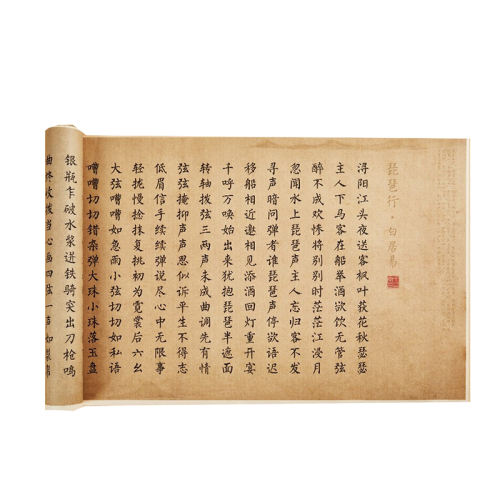 琵琶行·白居易
浔阳江头夜送客枫叶荻花秋瑟瑟
主人下马客在船举酒欲饮无管弦
醉不成欢惨将别别时茫茫江浸月
忽闻水上琵琶声主人忘归客不发
寻声暗问弹者谁琵琶声停欲语迟
移船相近邀相见添酒回灯重开宴
千呼万唤始出来犹抱琵琶半遮面
转轴拨弦三两声未成曲调先有情
弦弦掩抑声声思似诉平生不得志
低眉信手续续弹说尽心中无限事
轻拢慢捻抹复挑初为霓裳后六幺
大弦嘈嘈如急雨小弦切切如私语
嘈嘈切切错杂弹大珠小珠落玉盘
银瓶乍破水浆迸铁骑突出刀枪鸣
曲终收拨当心画四弦一声如裂帛